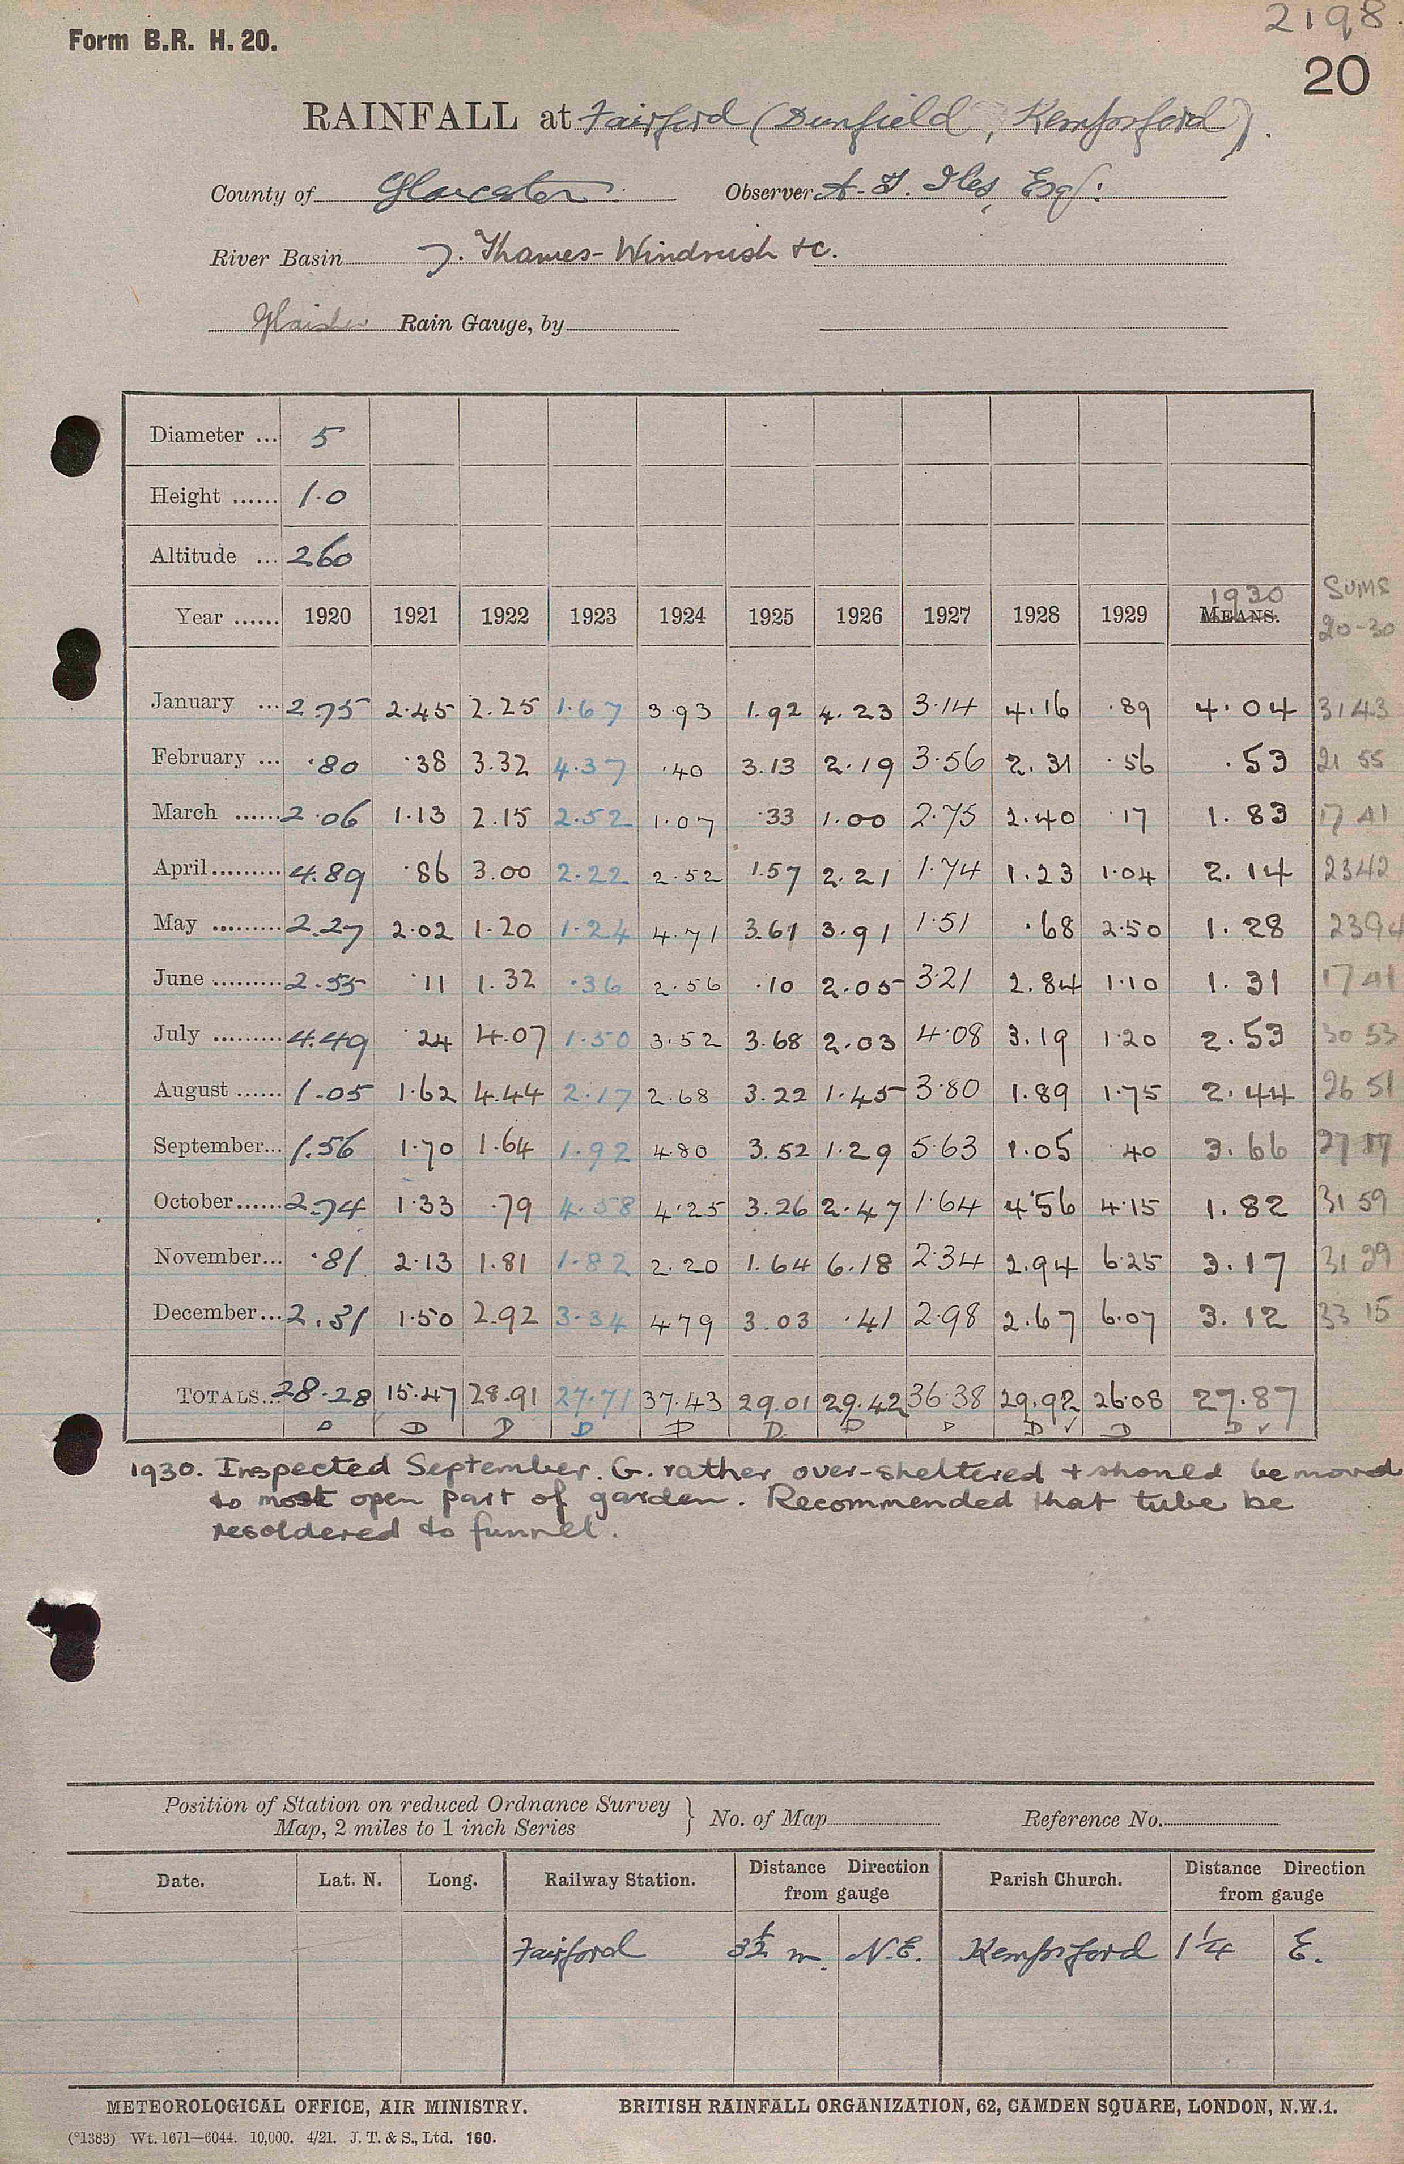 2198
Form B.R. H. 20.
20
RAINFALL at Fairford (Dunfield, Kempsford).
County of Gloucester. Observer A. T. Iles, Esq:
River Basin 7. Thames-Windrush &c.
Glaisher Rain Gauge, by
Diameter ... 5
Height ...... 1.0
Altitude ... 260
1930 SUMS
Year ...... 1920 1921 1922 1923 1924 1925 1926 1927 1928 1929 MEANS. 20-30
January ... 2.75 2.45 2.25 1.67 3.93 1.92 4.23 3.14 4.16 .89 4.04 3143
February ... .80 .38 3.32 4.37 .40 3.13 2.19 3.56 2.31 .56 .53 21 55
March ...... 2.06 1.13 2.15 2.52 1.07 .33 1.00 2.75 2.40 .17 1.83 17 41
April ......... 4.89 .86 3.00 2.22 2.52 1.57 2.21 1.74 1.23 1.04 2.14 2342
May ......... 2.27 2.02 1.20 1.24 4.71 3.61 3.91 1.51 .68 2.50 1.28 2394
June ......... 2.55 .11 1.32 .36 2.56 .10 2.05 3.21 2.84 1.10 1.31 1741
July ......... 4.49 .24 4.07 1.50 3.52 3.68 2.03 4.08 3.19 1.20 2.53 30 53
August ...... 1.05 1.62 4.44 2.17 2.68 3.22 1.45 3.80 1.89 1.75 2.44 26 51
September... 1.56 1.70 1.64 1.92 4.80 3.52 1.29 5.63 1.05 .40 3.66 27 17
October...... 2.74 1.33 .79 4.58 4.25 3.26 2.47 1.64 4.56 4.15 1.82 31 59
November... .81 2.13 1.81 1.82 2.20 1.64 6.18 2.34 2.94 6.25 3.17 31 29
December... 2.31 1.50 2.92 3.34 4.79 3.03 .41 2.98 2.67 6.07 3.12 33 15
TOTALS... 28.28 15.47 28.91 27.71 37.43 29.01 29.42 36.38 29.92 26.08 27.87
D D D D D D D D D ✓ D D ✓
1930. Inspected September. G. rather over-sheltered + should be moved
to most open part of garden. Recommended that tube be
resoldered to funnel.
Position of Station on reduced Ordnance Survey
Map, 2 miles to 1 inch Series } No. of Map Reference No.
Date. Lat. N. Long. Railway Station. Distance Direction from gauge Parish Church. Distance Direction from gauge
Fairford 3½ m. N.E. Kempsford 1¼ E.
METEOROLOGICAL OFFICE, AIR MINISTRY. BRITISH RAINFALL ORGANIZATION, 62, CAMDEN SQUARE, LONDON, N.W.1.
(*1383) Wt. 1671—6044. 10,000. 4/21. J. T. & S., Ltd. 160.